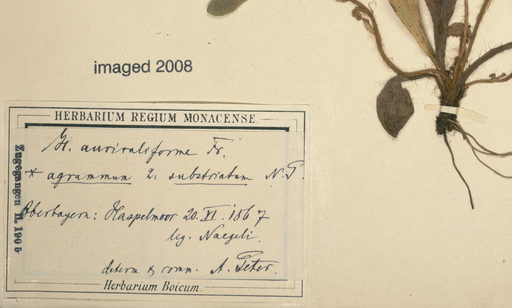 imaged 2008
HERBARIUM REGIUM MONACENSE.
H. auriculiforme Fr.
* agrammum 2. substriatum N. P.
Oberbayern: Haspelmoor 20. VI. 1867
leg. Naegeli.
determ. & comm. A. Peter.
Herbarium Boicum.
Zugegangen n. 190